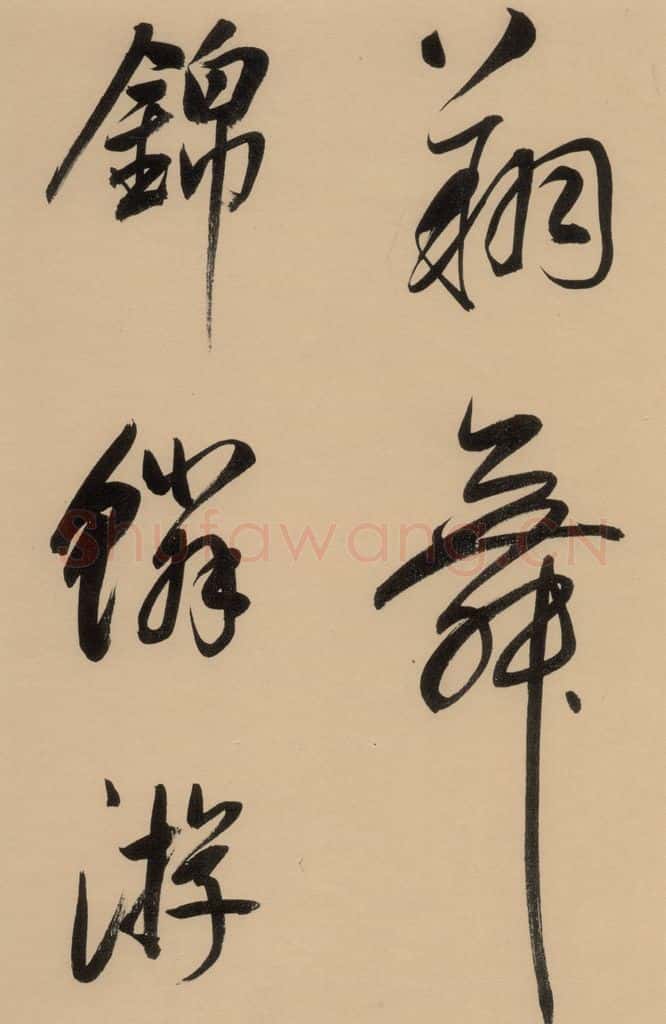 翔舞
錦鱗游
Shufawang.CN